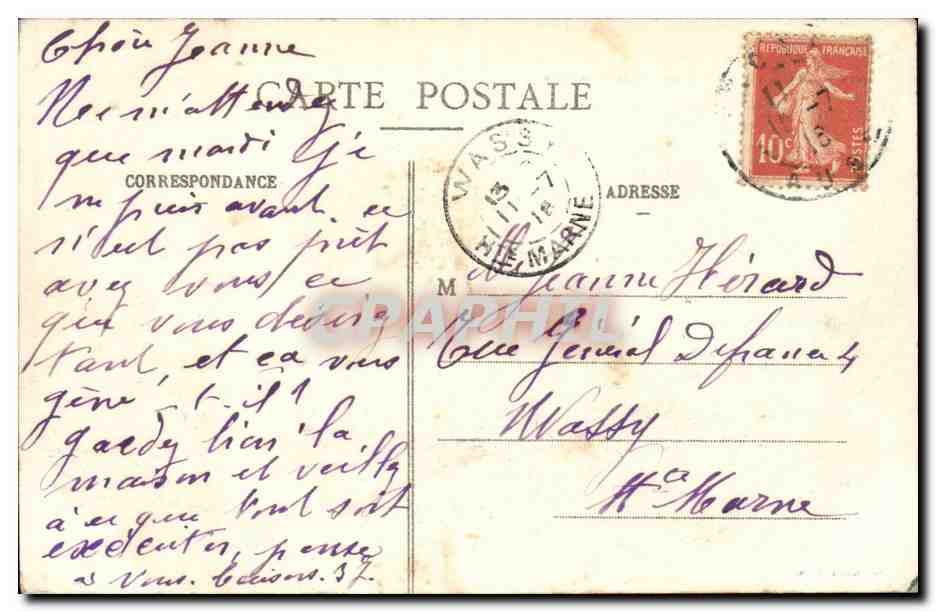 Chère Jeanne
Ne m'attendez
que mardi je
ne puis avant. ce
n'est pas prêt
avez vous ce
que vous desirez
tant, et ca vous
gêne t-il ?
gardez bien la
maison et veillez
à ce que tout soit
exécuter, pense
à vous. baisers. 37.
CARTE POSTALE
CORRESPONDANCE
ADRESSE
REPUBLIQUE FRANÇAISE
10c POSTES
WASSY
13
11 -7
18
HTE MARNE
M lle Jeanne Hérard
Rue Général Defrance 4
Wassy
Hte Marne
CPAPHIL